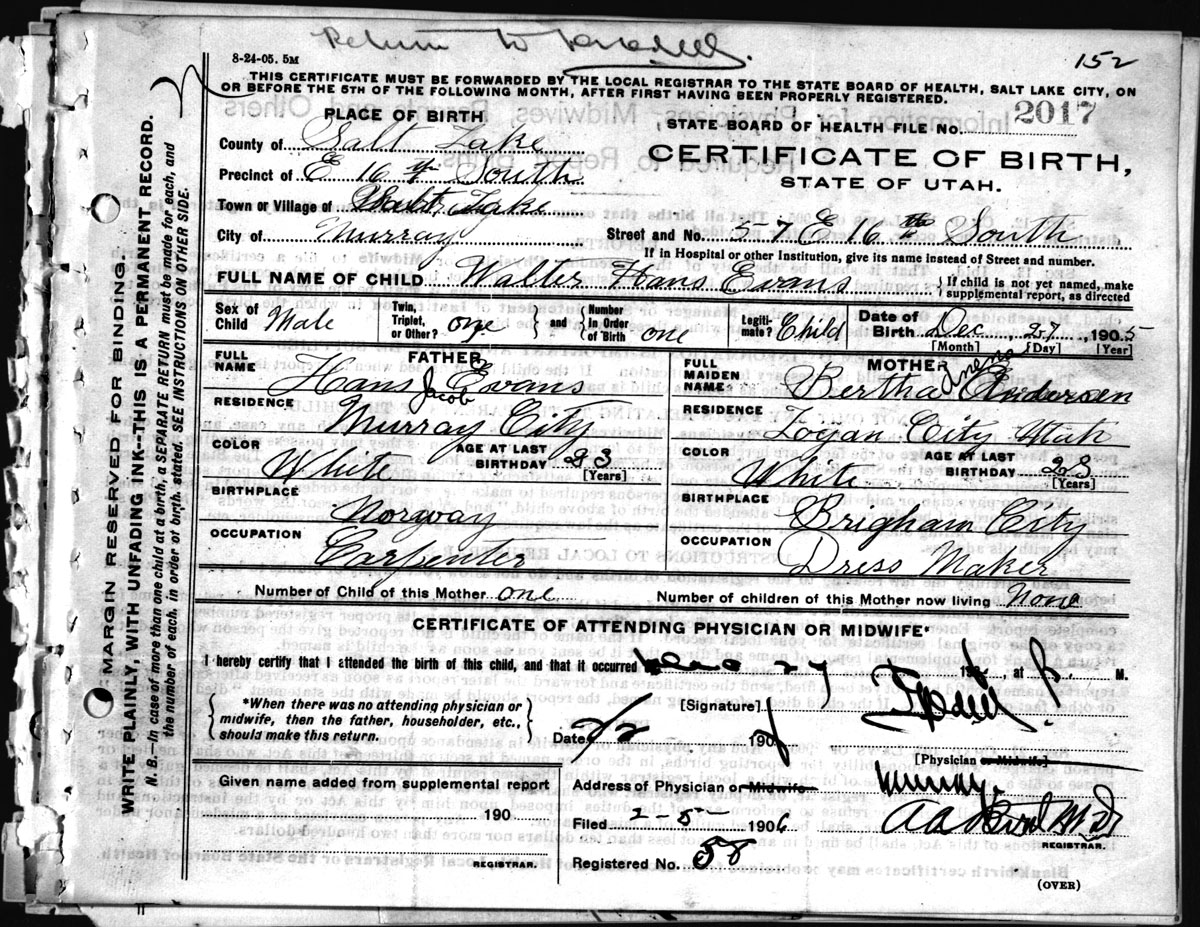 Return to
8-24-05. 5M
152
THIS CERTIFICATE MUST BE FORWARDED BY THE LOCAL REGISTRAR TO THE STATE BOARD OF HEALTH, SALT LAKE CITY, ON
OR BEFORE THE 5TH OF THE FOLLOWING MONTH, AFTER FIRST HAVING BEEN PROPERLY REGISTERED.
PLACE OF BIRTH
STATE BOARD OF HEALTH FILE NO. 2017
County of Salt Lake
CERTIFICATE OF BIRTH,
Precinct of E 16th South
STATE OF UTAH.
Town or Village of Salt Lake
City of Murray Street and No. 57 E 16th South
If in Hospital or other Institution, give its name instead of Street and number.
FULL NAME OF CHILD Walter Hans Evans { If child is not yet named, make
supplemental report, as directed
Sex of Child Male Twin, Triplet, or Other? one { and } Number In Order of Birth one Legiti- mate? Child Date of Birth Dec 27, 1905
[Month] [Day] [Year]
FATHER MOTHER
FULL NAME Hans Jacob Evans FULL MAIDEN NAME Bertha Andersen
RESIDENCE Murray City RESIDENCE Logan City Utah
COLOR White AGE AT LAST BIRTHDAY 23 [Years] COLOR White AGE AT LAST BIRTHDAY 23 [Years]
BIRTHPLACE Norway BIRTHPLACE Brigham City
OCCUPATION Carpenter OCCUPATION Dress Maker
Number of Child of this Mother one Number of children of this Mother now living None
CERTIFICATE OF ATTENDING PHYSICIAN OR MIDWIFE*
I hereby certify that I attended the birth of this child, and that it occurred Dec 27 190 , at M.
{ *When there was no attending physician or
midwife, then the father, householder, etc.,
should make this return. }
[Signature]
Date 190
[Physician or Midwife]
Given name added from supplemental report
190
REGISTRAR.
Address of Physician or Midwife Murray.
Filed 2-5- 1906
REGISTRAR.
Registered No. 58
(OVER)
MARGIN RESERVED FOR BINDING.
WRITE PLAINLY, WITH UNFADING INK--THIS IS A PERMANENT RECORD.
N. B.—In case of more than one child at a birth, a SEPARATE RETURN must be made for each, and
the number of each, in order of birth, stated. SEE INSTRUCTIONS ON OTHER SIDE.